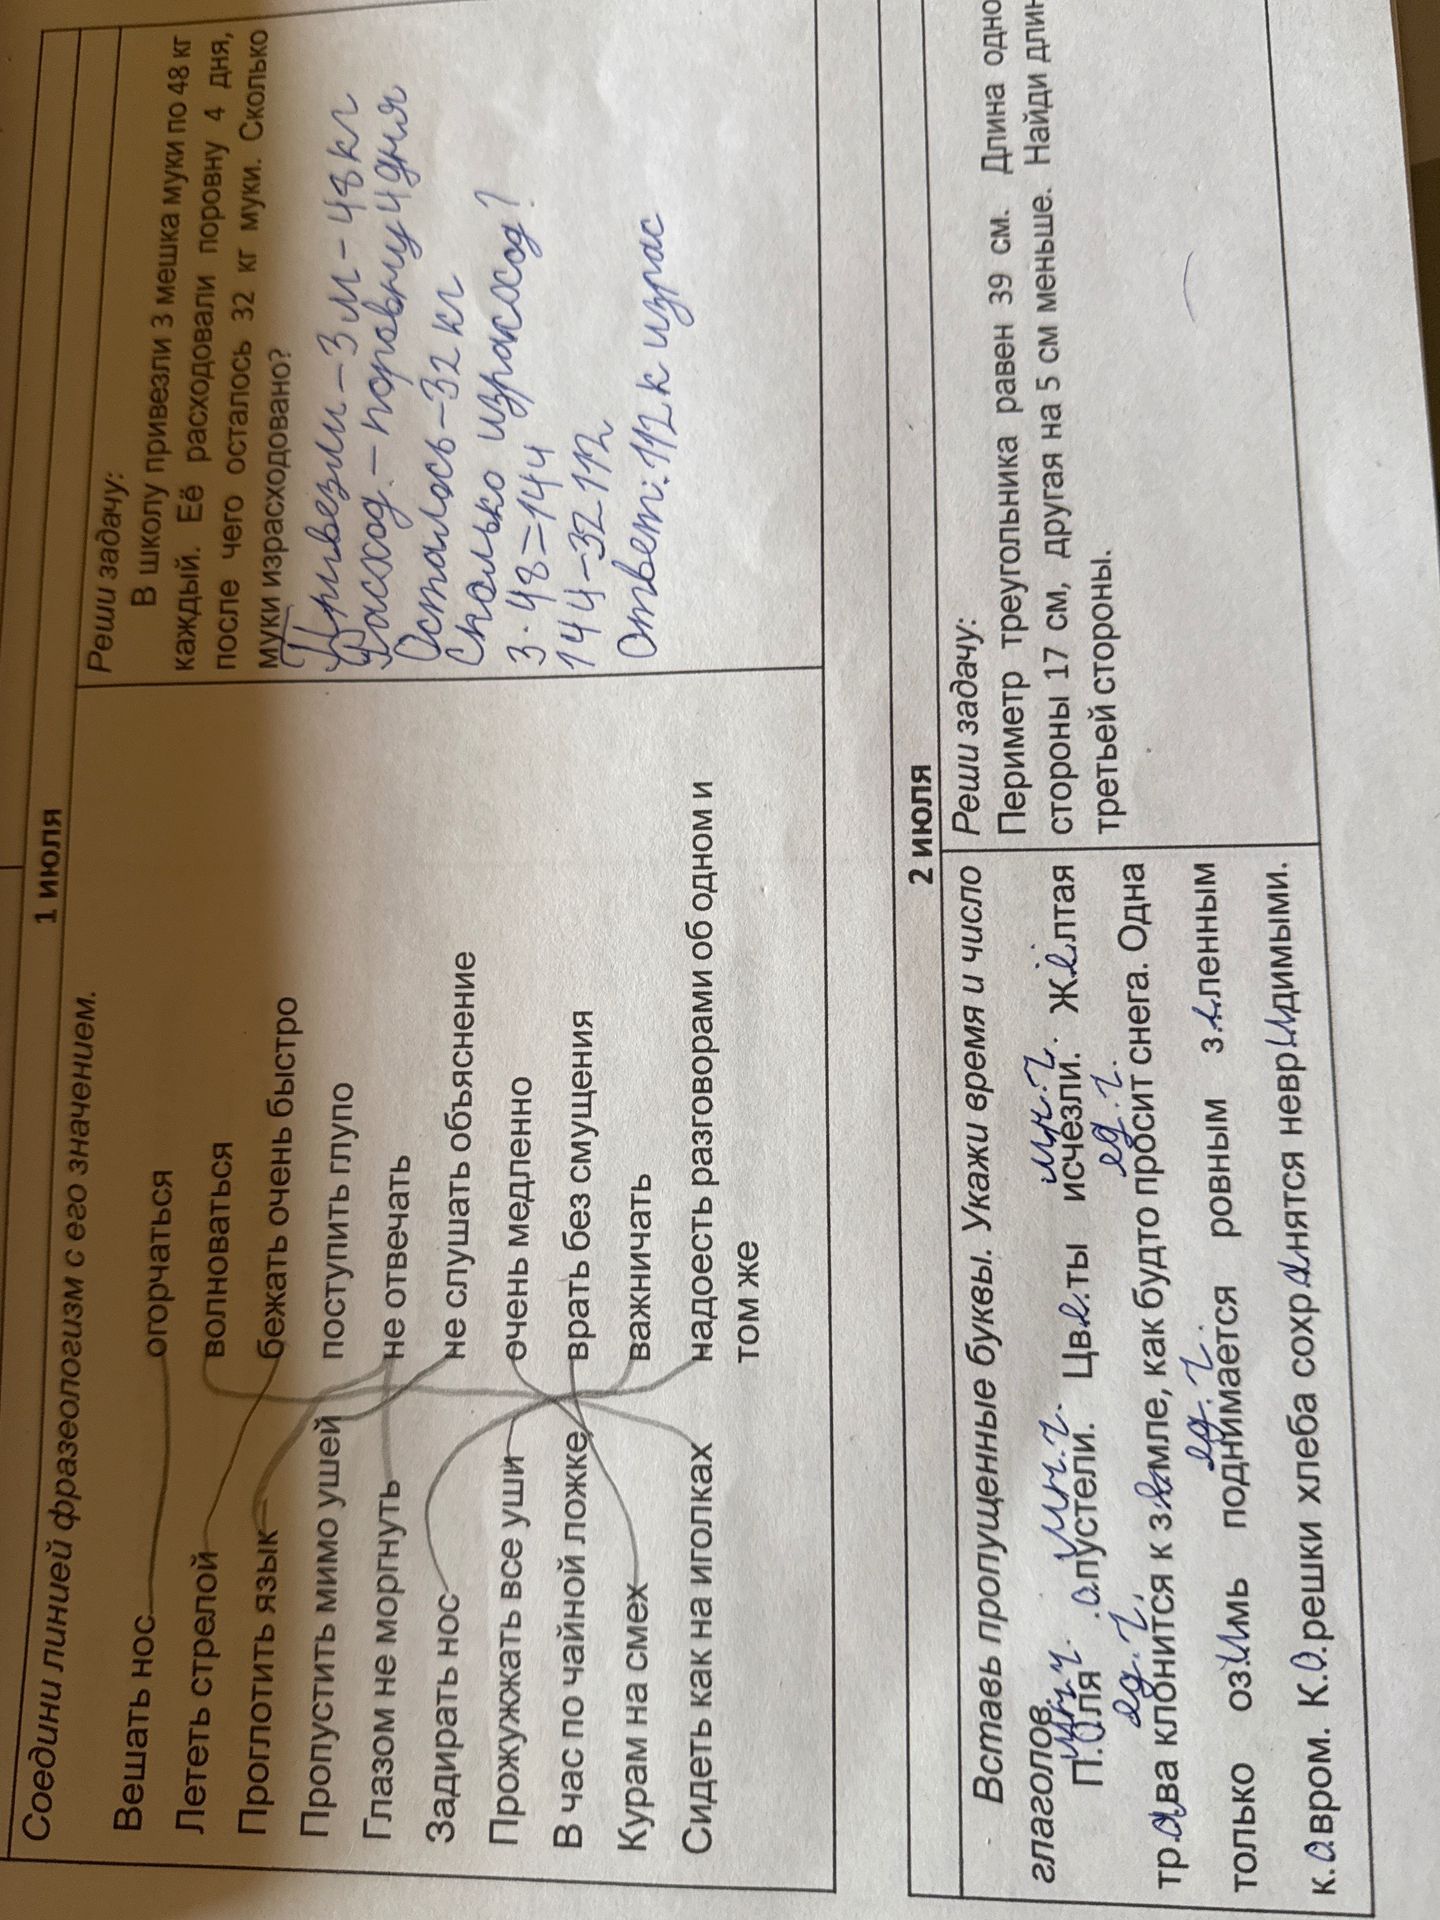 1 июля
Соедини линией фразеологизм с его значением.
Вешать нос
огорчаться
Лететь стрелой
волноваться
Проглотить язык
бежать очень быстро
Пропустить мимо ушей
поступить глупо
Глазом не моргнуть
не отвечать
Задирать нос
не слушать объяснение
Прожужжать все уши
очень медленно
В час по чайной ложке
врать без смущения
Курам на смех
важничать
Сидеть как на иголках
надоесть разговорами об одном и
том же
Реши задачу:
В школу привезли 3 мешка муки по 48 кг
каждый. Её расходовали поровну 4 дня,
после чего осталось 32 кг муки. Сколько
муки израсходовано?
Привезли – 3 м – 48 кг
Расход. – поровну 4 дня
Осталось – 32 кг
Сколько израсход?
3 · 48 = 144
144 – 32 112
Ответ: 112 к израс
2 июля
Вставь пропущенные буквы. Укажи время и число
глаголов.
мн.ч. мн.ч. мн.ч.
П.о.ля .опустели. Цв.е.ты исчезли. Ж.ё.лтая
ед.ч. ед.ч.
тр.а.ва клонится к з.е.мле, как будто просит снега. Одна
ед.ч.
только оз.и.мь поднимается ровным з.е.ленным
к.о.вром. К.о.решки хлеба сохр.а.нятся невр.и.димыми.
Реши задачу:
Периметр треугольника равен 39 см. Длина одно
стороны 17 см, другая на 5 см меньше. Найди длин
третьей стороны.